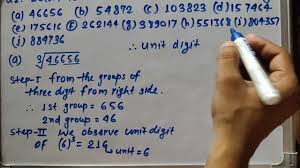 (a) 46656 (b) 54872 (c) 103823 (d) 157464
(e) 175616 (f) 262144 (g) 389017 (h) 551368 (i) 804357
(j) 884736
∴ unit digit
(a) ∛46656
Step-I from the groups of
three digit from right side.
∴ 1st group = 656
2nd group = 46
Step-II We observe unit digit
of (6)³ = 216
unit = 6